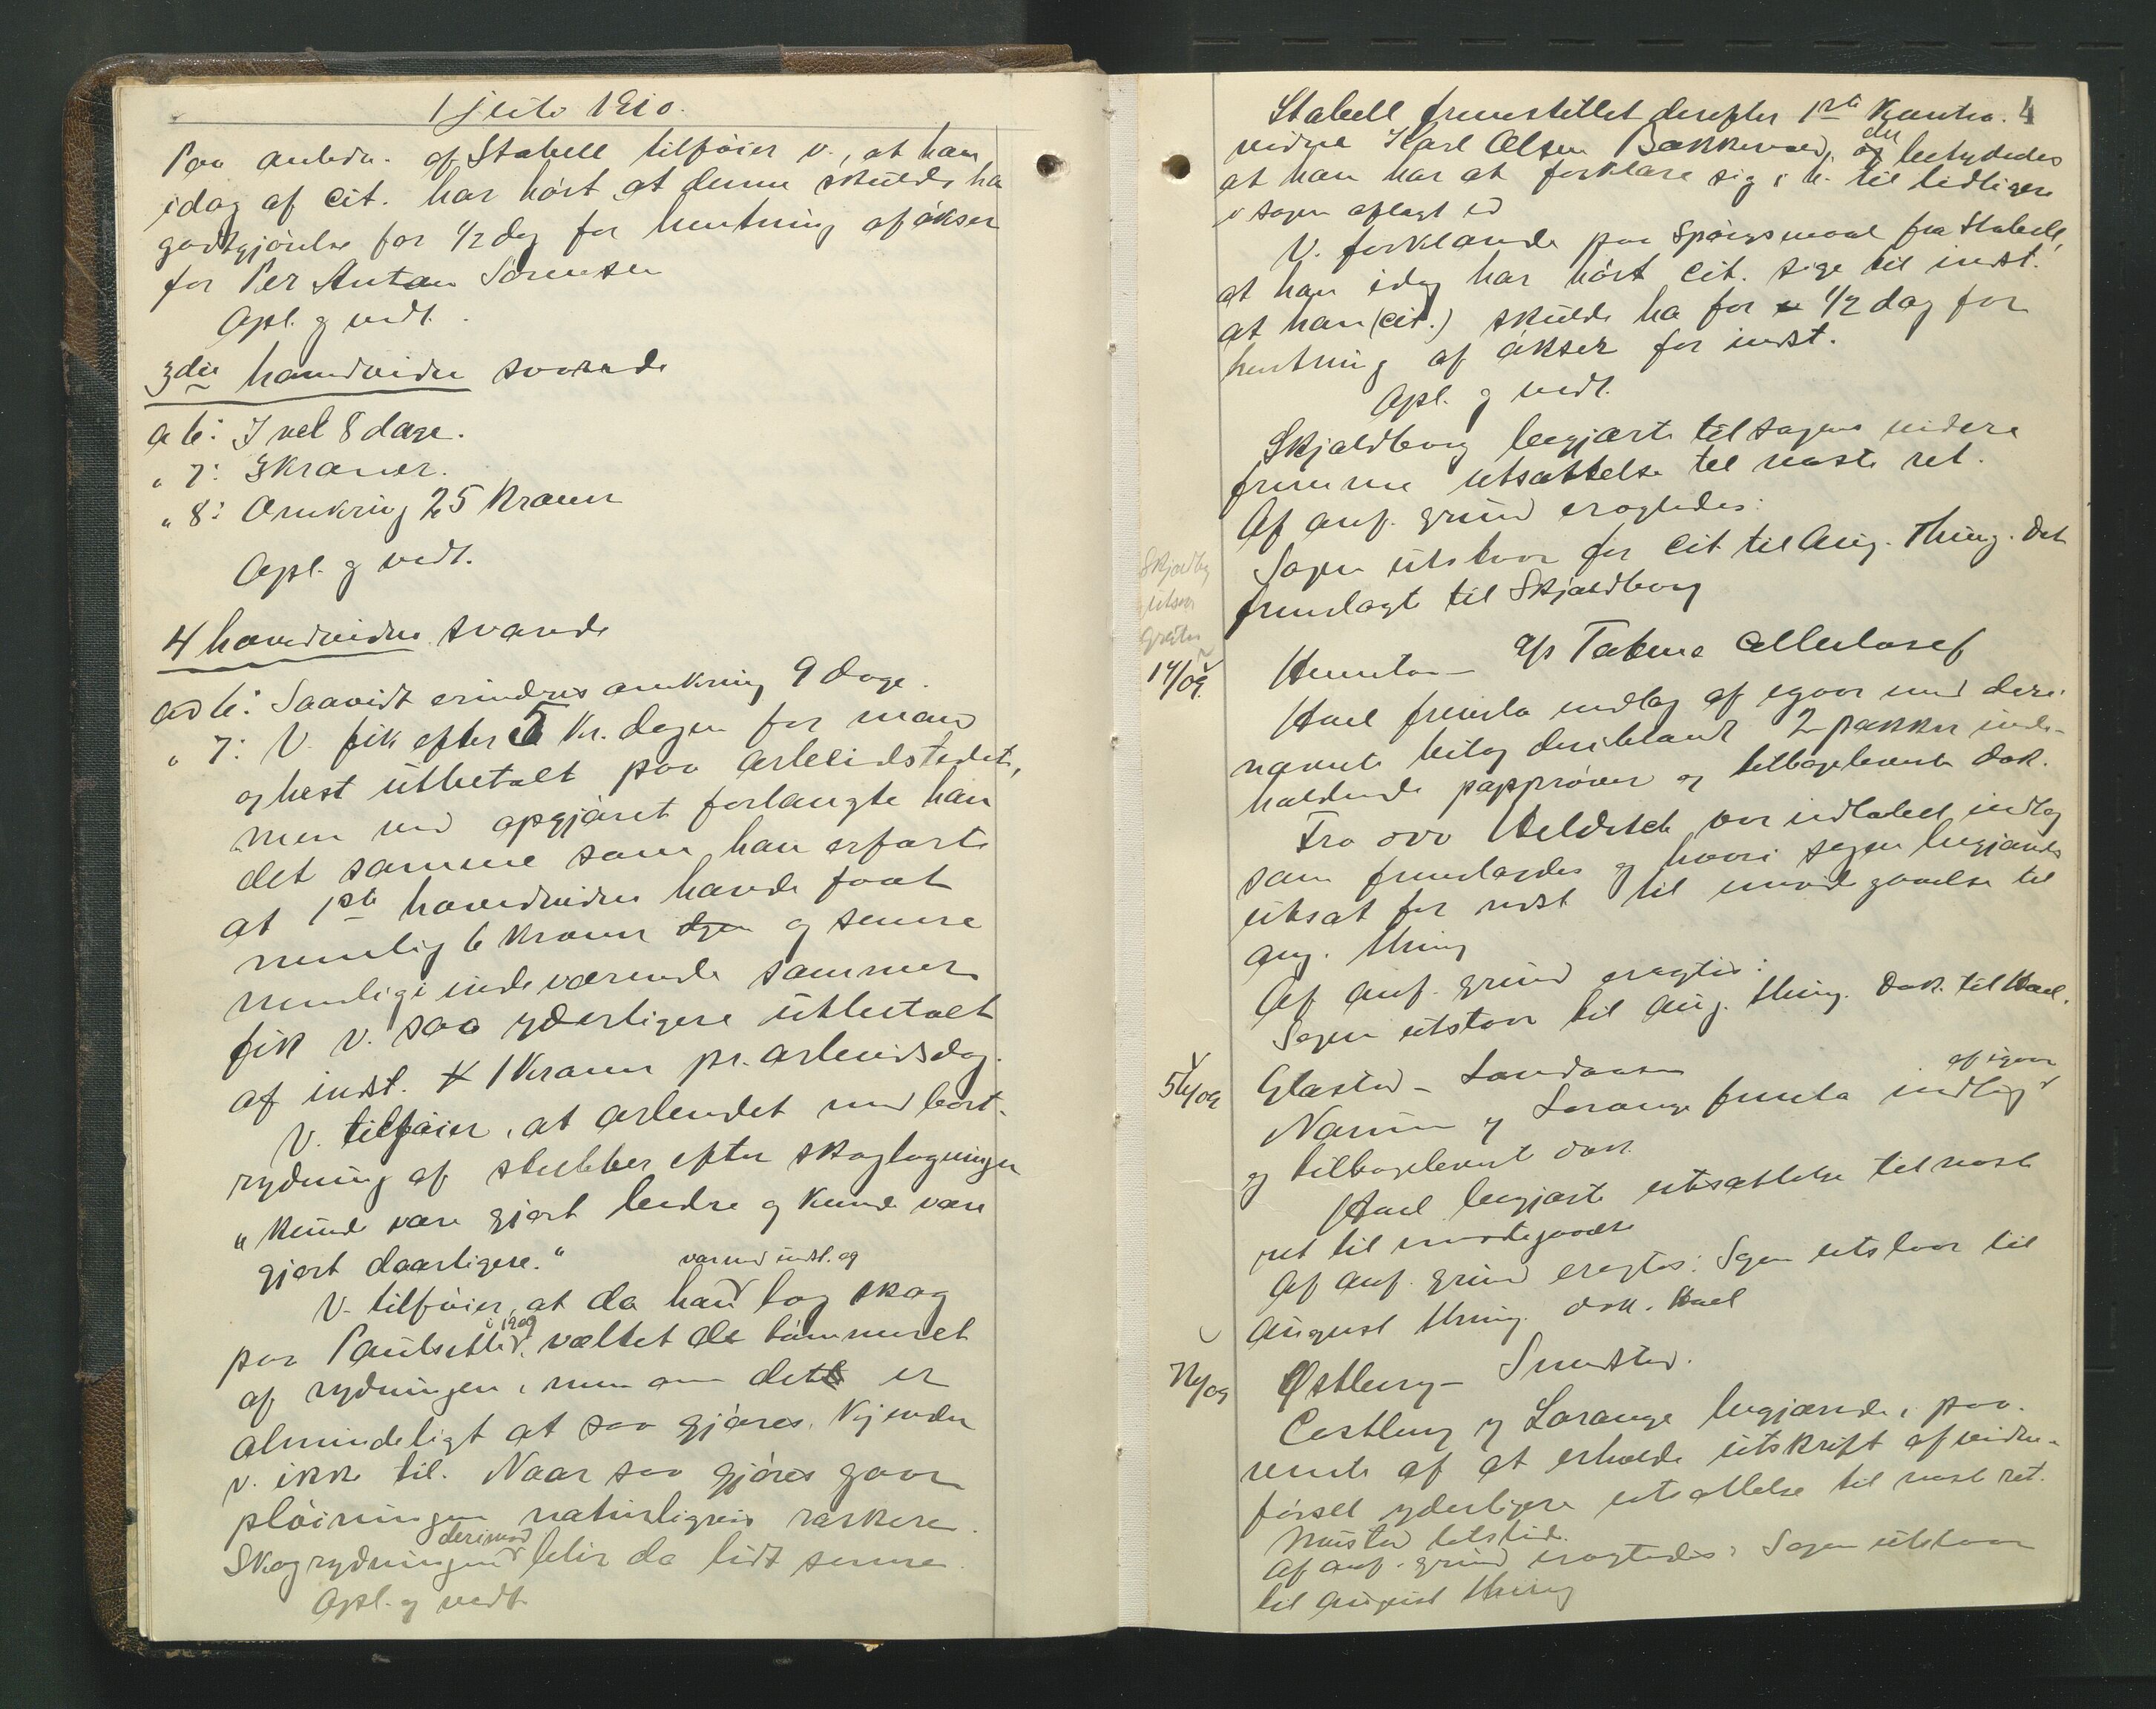 1 juli 1910.
Paa anledn. af Stabell tilføier v., at han
idag af cit. har hørt at denne skulde ha
godtgjørelse for 1/2 dag for hentning af økser
for Per Anton Sørensen
Opl. og vedt.
3die hovedvidne svarede
ad 6: I vel 8 dage.
" 7: 3 kroner.
" 8: Omkring 25 Kroner
Opl. og vedt.
4 hovedvidne svarede
ad 6: Saavidt erindres omkring 9 dage.
" 7: V. fik efter 5 Kr. dagen for mand
og hest utbetalt paa arbeidstedet,
men ved opgjøret forlangte han
det samme som han erfarte
at 1ste hovedvidne havde faat
nemlig 6 Kroner og senere
nemlig i indeværende sommer
fik v. saa yderligere utbetalt
af indst. 1 Krone pr. arbeidsdag.
V. tilføier, at arbeidet med bort-
rydning af stubber efter skoghugningen
"kunde være gjort bedre og kunde være
gjort daarligere."
V. tilføier, at da han var med indst. og tog skog
paa Paulsetter i 1909, væltet de tømmeret
af rydningen, men om dette er
almindeligt at saa gjøres, kjender
v. ikke til. Naar saa gjøres gaar
pløiningen naturligvis raskere.
Skogrydningen derimod blir da lidt senere.
Opl. og vedt.
4
Stabell fremstillet derefter 1ste Kontra-
vidne Karl Olsen Bakkevold, der betydedes
at han har at forklare sig i h. til tidligere
i sagen aflagt ed
V. forklarede paa Spørgsmaal fra Stabell,
at han idag har hørt cit. sige til indst.
at han (cit.) skulde ha for 1/2 dag for
hentning af økser for indst.
Opl. og vedt.
Skjoldborg begjærte til sagens videre
fremme utsættelse til næste ret.
Af anf. grund eragtedes:
Sagen utstaar for cit til Aug. Thing. Det
fremlagte til Skjoldborg
14/09 a/s Tofte Cellulosef
Hael fremla indlæg af igaar med deri
nævnte bilag deriblandt 2 pakker inde-
holdende papprøver og tilbageleverte dok.
Fra ovr. Heldrich var indløbet indlæg
som fremlagdes og hvori sagen begjæredes
utsat for indst til imødegaaelse til
aug. thing
Af anf. grund eragtes:
Sagen utstaar til Aug. thing. Dok. til Hael.
Glasted - Sandaasen
Nærum og Lorange fremla indlæg af igaar
og tilbageleverte dok.
Hael begjærte utsættelse til næste
ret til imødegaaelse
Af anf. grund eragtes: Sagen utstaar til
August thing. Dok. Hael
Østberg - Smestad.
Østberg og Lorange begjærede, paa-
vente af at erholde utskrift af vidne-
førsel yderligere utsættelse til næste ret.
Af anf. grund eragtedes: Sagen utstaar
til August thing